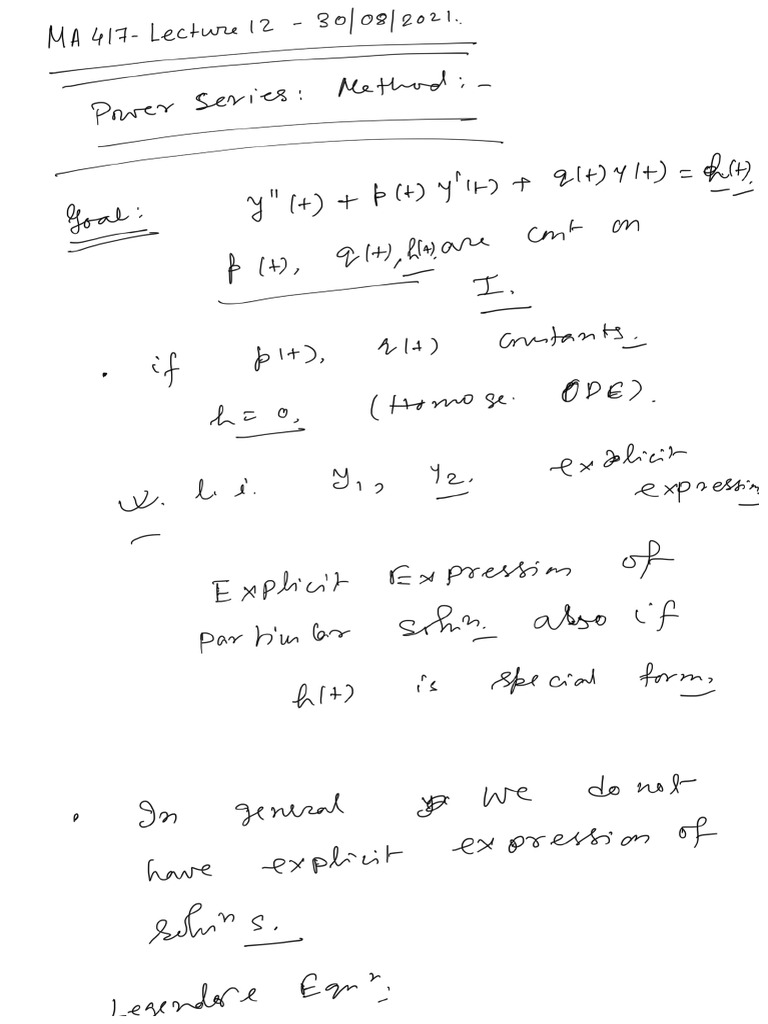 MA 417- Lecture 12 - 30/08/2021.
Power Series: Method: -
Goal: y''(t) + p(t) y'(t) + q(t) y(t) = h(t).
p(t), q(t), h(t) are cont on
I.
• if p(t), q(t) constants.
h = 0, (Homoge. ODE).
l. i. y1, y2. explicit
expression
Explicit Expression of
particular solun. also if
h(t) is special form,
• In general we do not
have explicit expression of
soluns.
Legendere Eqn: